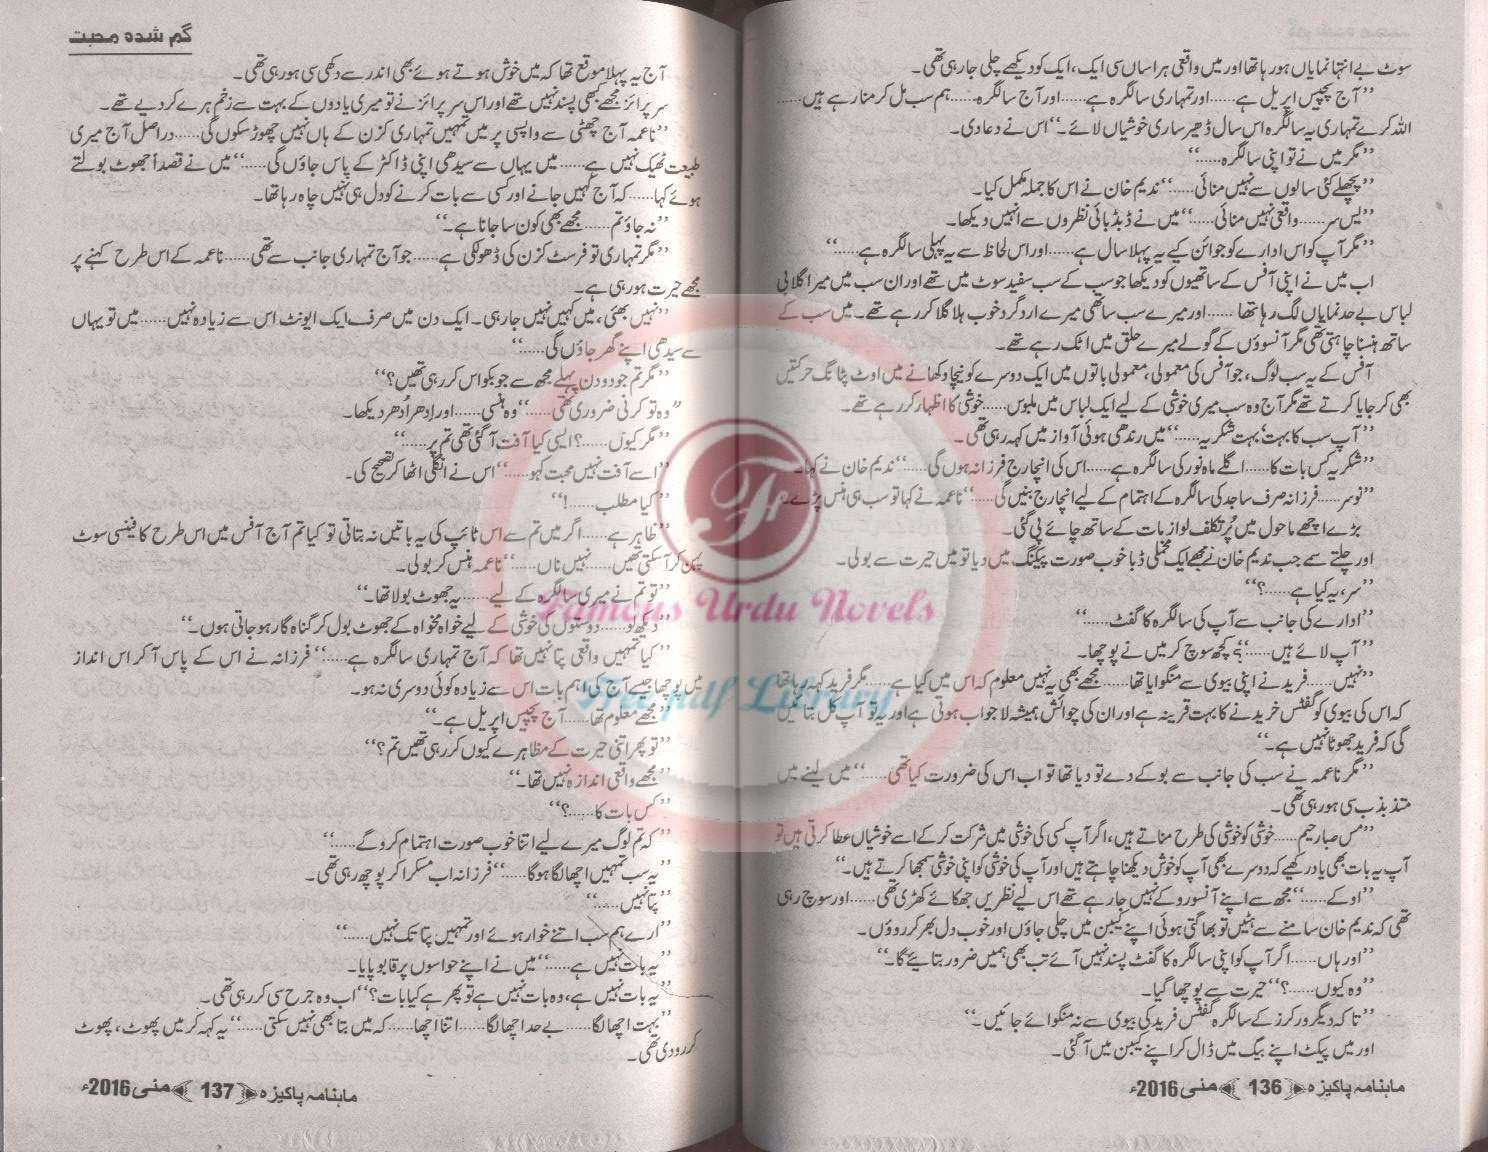 سوٹ بے انتہا نمایاں ہو رہا تھا اور میں واقعی ہراساں سی ایک، ایک کو دیکھے چلی جا رہی تھی۔
”آج پچیس اپریل ہے......اور تمہاری سالگرہ ہے......اور آج سالگرہ......ہم سب مل کر منا رہے ہیں......
اللہ کرے تمہاری یہ سالگرہ اس سال ڈھیر ساری خوشیاں لائے۔“ اس نے دعا دی۔
”مگر میں نے تو اپنی سالگرہ......“
”پچھلے کئی سالوں سے نہیں منائی......“ ندیم خان نے اس کا جملہ مکمل کیا۔
”یس سر......واقعی نہیں منائی......“ میں نے ڈبڈبائی نظروں سے انہیں دیکھا۔
”مگر آپ کو اس ادارے کو جوائن کیے یہ پہلا سال ہے......اور اس لحاظ سے یہ پہلی سالگرہ ہے......“
اب میں نے اپنی آفس کے ساتھیوں کو دیکھا جو سب کے سب سفید سوٹ میں تھے اور ان سب میں میرا گلابی
لباس بے حد نمایاں لگ رہا تھا......اور میرے سب ساتھی میرے اردگرد خوب ہلا گلا کر رہے تھے۔ میں سب کے
ساتھ ہنسنا چاہتی تھی مگر آنسوؤں کے گولے میرے حلق میں اٹک رہے تھے۔
آفس کے یہ سب لوگ، جو آفس کی معمولی، معمولی باتوں میں ایک دوسرے کو نیچا دکھانے میں اوٹ پٹانگ حرکتیں
بھی کر جایا کرتے تھے مگر آج وہ سب میری خوشی کے لیے ایک لباس میں ملبوس......خوشی کا اظہار کر رہے تھے۔
”آپ سب کا بہت، بہت شکریہ......“ میں رندھی ہوئی آواز میں کہہ رہی تھی۔
”شکریہ کس بات کا......اگلے ماہ نور کی سالگرہ ہے......اس کی انچارج فرزانہ ہوں گی......“ ندیم خان نے کہا۔
”نو سر......فرزانہ صرف ساجد کی سالگرہ کے اہتمام کے لیے انچارج بنیں گی......“ ناعمہ نے کہا تو سب ہی ہنس پڑے۔
بڑے اچھے ماحول میں پُرتکلف لوازمات کے ساتھ چائے پی گئی۔
اور چلتے سمے جب ندیم خان نے مجھے ایک مخملی ڈبا خوب صورت پیکنگ میں دیا تو میں حیرت سے بولی۔
”سر، یہ کیا ہے......؟“
”ادارے کی جانب سے آپ کی سالگرہ کا گفٹ......“
”آپ لائے ہیں......؟“ کچھ سوچ کر میں نے پوچھا۔
”نہیں......فرید نے اپنی بیوی سے منگوایا تھا......مجھے بھی یہ نہیں معلوم کہ اس میں کیا ہے......مگر فرید کہہ رہا تھا
کہ اس کی بیوی کو گفٹس خریدنے کا بہت قرینہ ہے اور ان کی چوائس ہمیشہ لاجواب ہوتی ہے اور یہ تو آپ کل بتائیں
گی کہ فرید جھوٹا نہیں ہے۔“
”مگر ناعمہ نے سب کی جانب سے بوکے دے تو دیا تھا تو اب اس کی ضرورت کیا تھی......“ میں لینے میں
متذبذب سی ہو رہی تھی۔
”مس صبا رحیم......خوشی کو خوشی کی طرح مناتے ہیں، اگر آپ کسی کی خوشی میں شرکت کر کے اسے خوشیاں عطا کرتی ہیں تو
آپ یہ بات بھی یاد رکھیے کہ دوسرے بھی آپ کو خوش دیکھنا چاہتے ہیں اور آپ کی خوشی کو اپنی خوشی سمجھا کرتے ہیں۔“
”اوکے......“ مجھ سے اپنے آنسو روکے نہیں جا رہے تھے اس لیے نظریں جھکائے کھڑی تھی......اور سوچ رہی
تھی کہ ندیم خان سامنے سے ہٹیں تو بھاگتی ہوئی اپنے کیبن میں چلی جاؤں اور خوب دل بھر کر روؤں۔
”اور ہاں......اگر آپ کو اپنی سالگرہ کا گفٹ پسند نہیں آئے تب بھی ہمیں ضرور بتائیے گا۔“
”وہ کیوں......؟“ حیرت سے پوچھا گیا۔
”تاکہ دیگر ورکرز کے سالگرہ گفٹس فرید کی بیوی سے نہ منگوائے جائیں۔“
اور میں پیکٹ اپنے بیگ میں ڈال کر اپنے کیبن میں آ گئی۔
ماہنامہ پاکیزہ 136 مئی 2016ء
گم شدہ محبت
آج یہ پہلا موقع تھا کہ میں خوش ہوتے ہوئے بھی اندر سے دکھی سی ہو رہی تھی۔
سرپرائز مجھے کبھی پسند نہیں تھے اور اس سرپرائز نے تو میری یادوں کے بہت سے زخم ہرے کر دیے تھے۔
”ناعمہ آج چھٹی سے واپسی پر میں تمہیں تمہاری کزن کے ہاں نہیں چھوڑ سکوں گی......دراصل آج میری
طبیعت ٹھیک نہیں ہے......میں یہاں سے سیدھی اپنی ڈاکٹر کے پاس جاؤں گی......“ میں نے قصداً جھوٹ بولتے
ہوئے کہا......کہ آج کہیں جانے اور کسی سے بات کرنے کو دل ہی نہیں چاہ رہا تھا۔
”نہ جاؤ تم......مجھے بھی کون سا جانا ہے۔“
”مگر تمہاری تو فرسٹ کزن کی ڈھولکی ہے......جو آج تمہاری جانب سے تھی......ناعمہ کے اس طرح کہنے پر
مجھے حیرت ہو رہی ہے۔
”نہیں بھئی، میں کہیں نہیں جا رہی۔ ایک دن میں صرف ایک ایونٹ اس سے زیادہ نہیں......میں تو یہاں
سے سیدھی اپنے گھر جاؤں گی......“
”مگر تم جو دو دن پہلے مجھ سے جو بکواس کر رہی تھیں؟“
”وہ تو کرنی ضروری تھی......“ وہ ہنسی......اور اِدھر اُدھر دیکھا۔
”مگر کیوں......؟ ایسی کیا آفت آ گئی تھی تم پر......“
”اسے آفت نہیں محبت کہو......“ اس نے انگلی اٹھا کر تصحیح کی۔
”کیا مطلب......!“
”ظاہر ہے......اگر میں تم سے اس ٹائپ کی یہ باتیں نہ بتاتی تو کیا تم آج آفس میں اس طرح کا فینسی سوٹ
پہن کر آ سکتی تھیں......نہیں ناں......“ ناعمہ ہنس کر بولی۔
”تو تم نے میری سالگرہ کے لیے......یہ جھوٹ بولا تھا۔“
”دیکھ لو......دوستوں کی خوشی کے لیے خواہ مخواہ کے جھوٹ بول کر گناہ گار ہو جاتی ہوں۔“
”کیا تمہیں واقعی پتا نہیں تھا کہ آج تمہاری سالگرہ ہے......“ فرزانہ نے اس کے پاس آ کر اس انداز
میں پوچھا جیسے آج کی اہم بات اس سے زیادہ کوئی دوسری نہ ہو۔
”مجھے معلوم تھا......آج پچیس اپریل ہے۔“
”تو پھر اتنی حیرت کے مظاہرے کیوں کر رہی تھیں تم؟“
”مجھے واقعی اندازہ نہیں تھا۔“
”کس بات کا......؟“
”کہ تم لوگ میرے لیے اتنا خوب صورت اہتمام کرو گے......“
”یہ سب تمہیں اچھا لگا ہوگا......“ فرزانہ اب مسکرا کر پوچھ رہی تھی۔
”پتا نہیں......“
”ارے ہم سب اتنے خوار ہوئے اور تمہیں پتا تک نہیں......“
”یہ بات نہیں ہے......“ میں نے اپنے حواسوں پر قابو پایا۔
”یہ بات نہیں ہے، وہ بات نہیں ہے تو پھر ہے کیا بات؟“ اب وہ جرح سی کر رہی تھی۔
”بہت اچھا لگا......بے حد اچھا لگا......اتنا اچھا......کہ میں بتا بھی نہیں سکتی......“ یہ کہہ کر میں پھوٹ، پھوٹ
کر رو دی تھی۔
ماہنامہ پاکیزہ 137 مئی 2016ء
Famous Urdu Novels
Free pdf Library